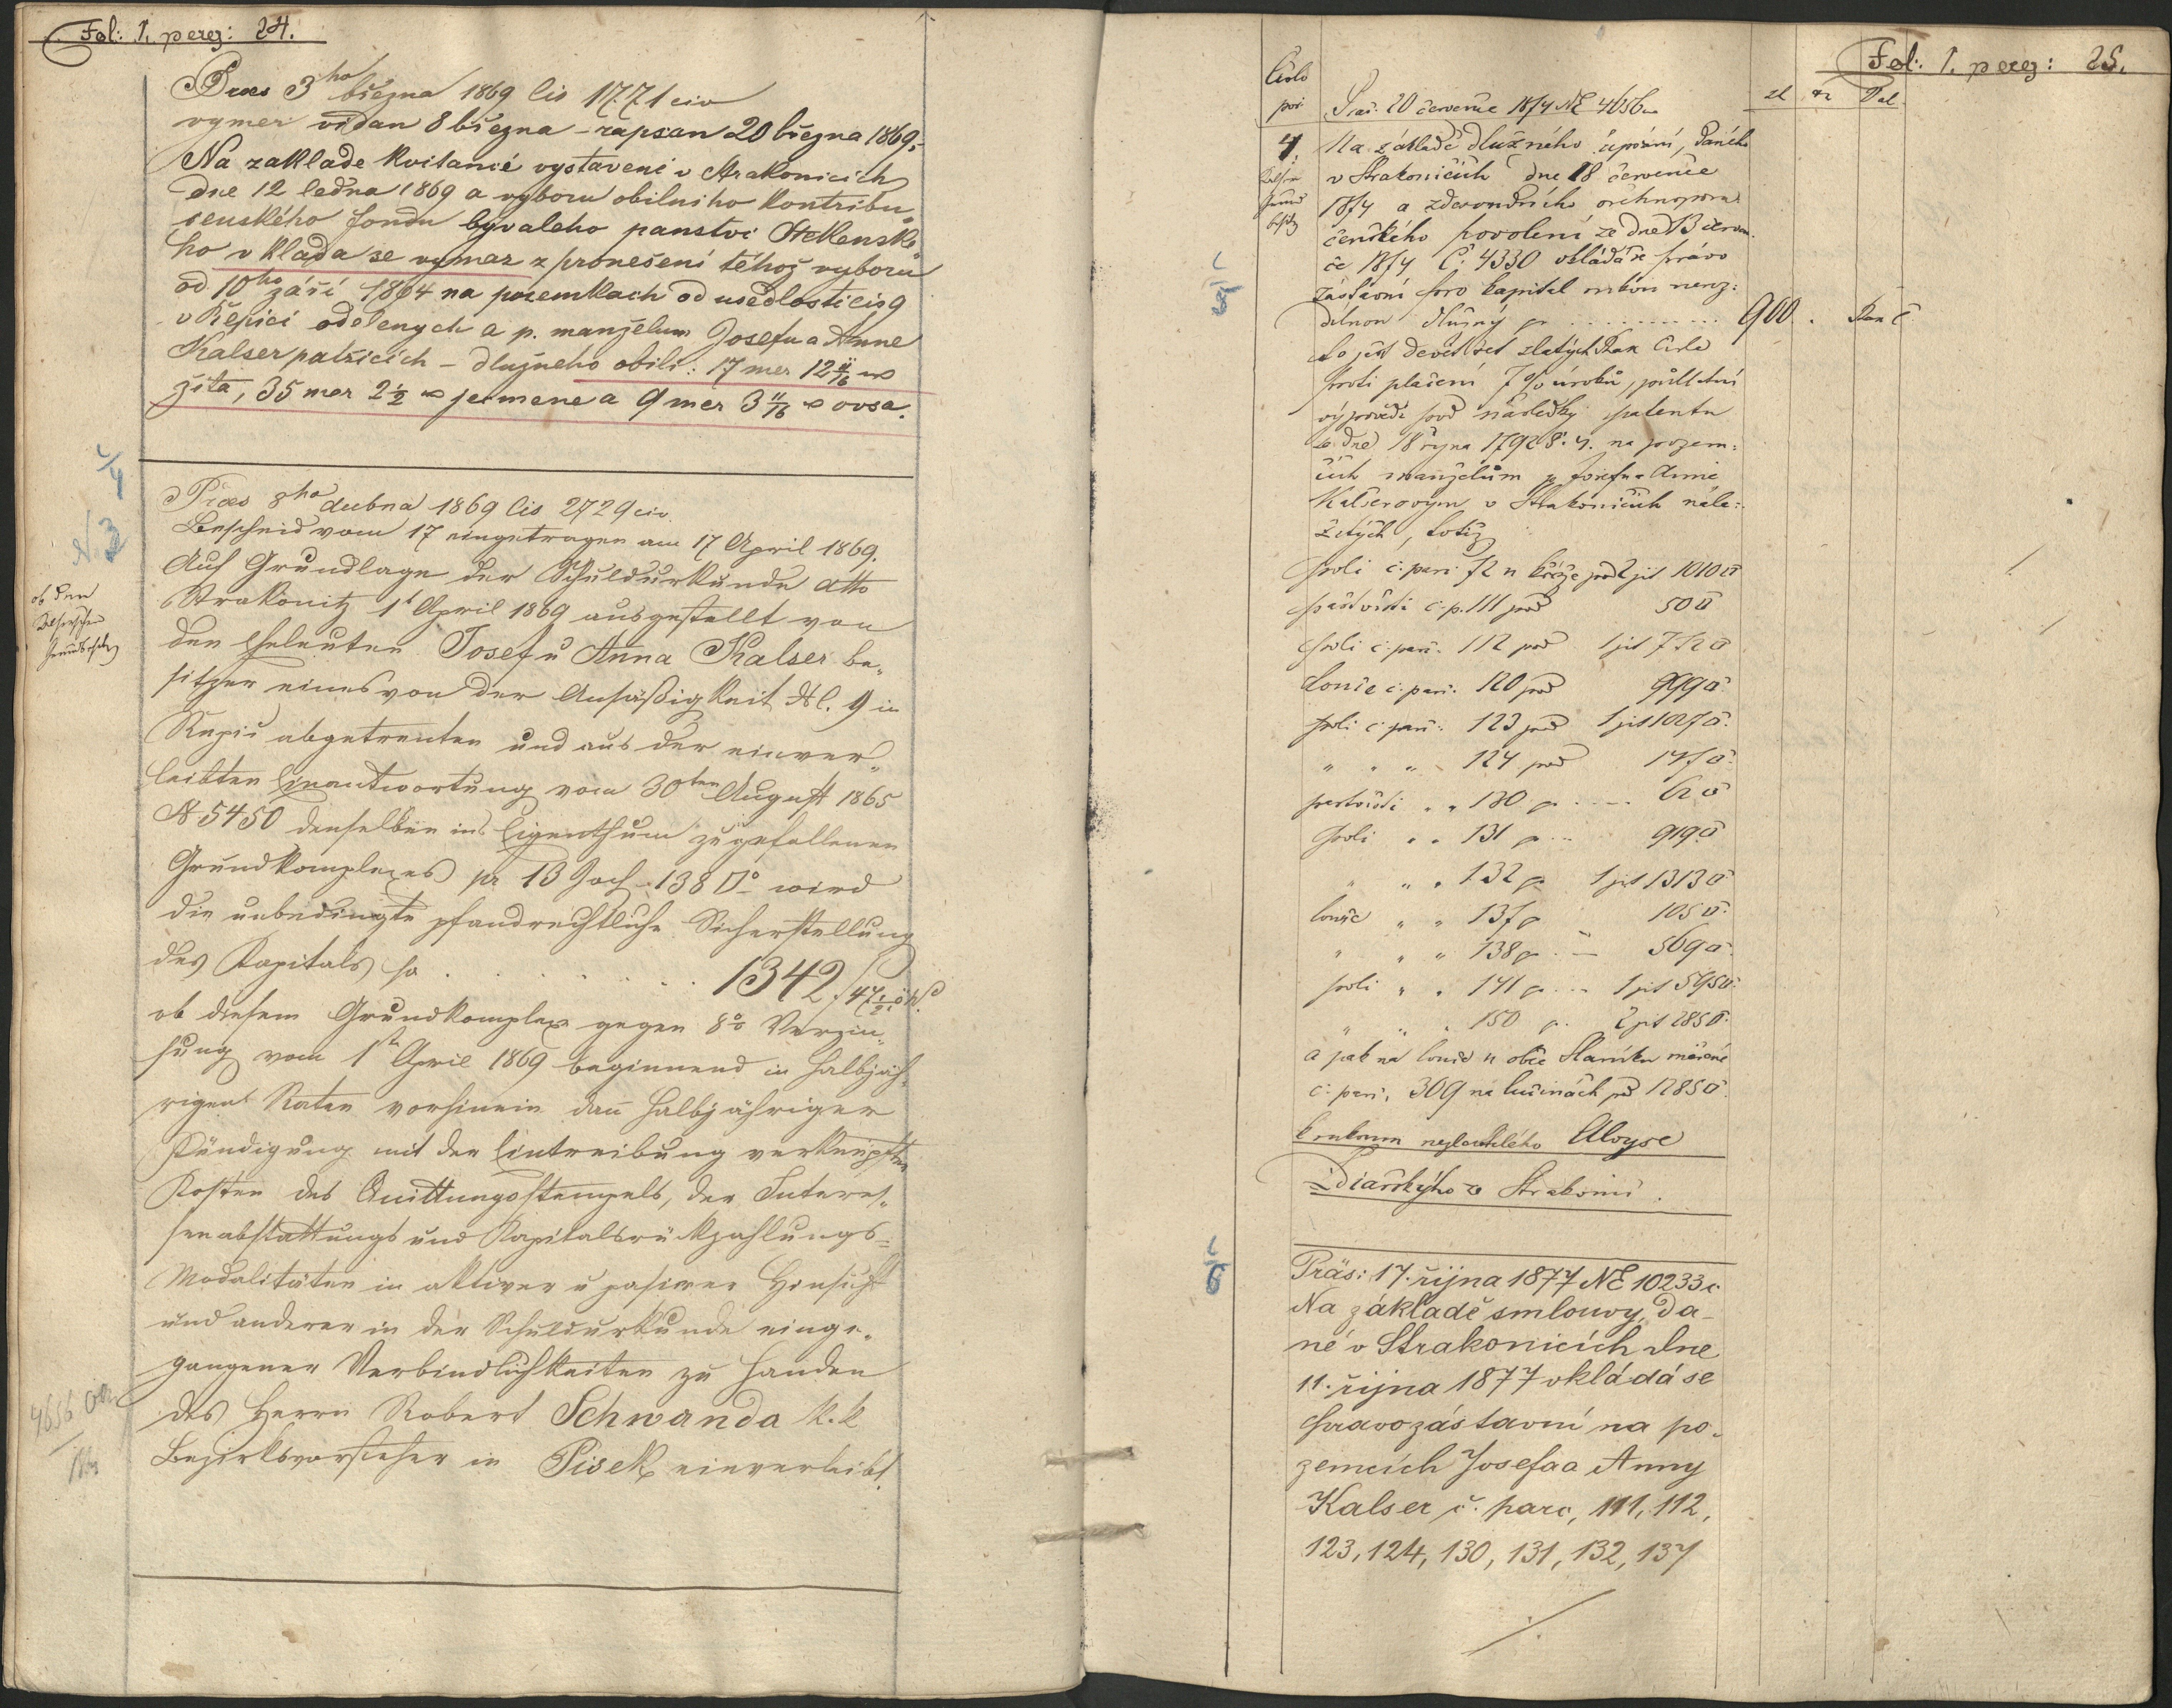 Fol: I. perez: 24.
Präs 3ho března 1869 čis 1771 civ
vymer vidan 8 března - zapsan 20 března 1869.
Na zaklade kvitancé vystavené v Strakonicich
dne 12 ledna 1869 a vyboru obilniho kontribu„
cenského fondu byvaleho panstvi Steklensko
ho vklada se vymaz z pronešeni téhož vyboru
od 10ho září 1864 na pozemkach od usedlosti čis 9
v Řepici odělenych a p. manželum Josefu a Anne
Kalser patřicich - dlužneho obili: 17 mer 12 11/16
žita, 35 mer 2 1/2 jecmene a 9 mer 3 11/16 ovsa.
C/4
N. 3
Präs 8ho dubna 1869 čis 2729 civ.
Bescheid vom 17 eingetragen am 17 April 1869.
Auf Grundlage der Schuldurkunde dtto
Strakonitz 1t April 1869 ausgestellt von
den Eheleuten Josef u Anna Kalser be„
sitzer eines von der Ansäßigkeit N. 9 in
Řepic abgetrenten und aus der einver„
leibten Einantwortung vom 30ten August 1865
N. 5450 denselben ins Eigenthum zugefallenen
Grundkomplexes pr 13 Joch 138 □° wird
die unbedingte pfandrechtliche Sicherstellung
des Kapitals pr . . . . . . . 1342 f 47 1/2 öW
ob diesem Grundkomplex gegen 8% Verzin„
sung vom 1t April 1869 beginnend in halbjäh„
rigen Raten vorhinein dan halbjähriger
Kündigung mit der Eintreibung verknüpften
Kosten des Quittungsstempels, der Interes„
senabstattungs und Kapitalsrückzahlungs=
Modalitäten in aktiver u pasiver Hinsicht
und anderer in der Schuldurkunde einge„
gangener Verbindlichkeiten zu Handen
des Herrn Robert Schwanda k. k
Bezirksvorsteher in Pisek einverleibt.
ob den
Kalserschen
4656
Fol: I. perez: 25.
Čislo
poř
zl kr Val
Praš. 20 července 1874 NE 4656
4.
Na základě dlužného úpisu, daného
v Strakonicích dne 18 července
1874 a
čenského povolení ze dne 13 červen
ce 1874 Č. 4330 vkládá se právo
zástavní pro kapital
dílnou dlužný pr . . . . . . . 900 .
to jest devět set zlatých Rak čisla
proti placení 7% úroků, půlletní
výpovědi pod následky patentu
ze dne 18 října 1792 na pozem=
cích manželům p Josefu a Anně
Kalserovým v Strakonicích nále=
žetých, totiž
C/5
poli č: parc 72 1 jit 1010□°
pastvišti č. p. 111 pod 50□°
poli č. parc. 112 pod 1 jit 772□°
Louce č. parc. 120 pod 999□°
poli č. parc: 123 pod 1 jit 1027□°
„ „ „ 124 pod 147□°
pastvišti „ „ 130 p . . . 62□°
Poli „ „ 131 p . . 919□°
„ „ „ 132 p 1 jit 1313□°
louce „ „ 137 p 105□°
„ „ „ 138 p . . 569□°
poli „ „ 141 p . . 1 jit 595□°
„ „ „ 150 p. 2 jit 285□°
a pak na louce v obci Slaníku
č. parc. 309 na lučinách pod 1285□°
k rukoum nezletilého Aloyse
Ždiarského v Strakonici.
C/6
Präs: 17. října 1877 NE 10233 c.
Na základě smlouvy, da-
né v Strakonicích dne
11. října 1877 vkládá se
Pravo zástavní na po„
zemcích Josefa a Anny
Kalser č. parc, 111, 112,
123, 124, 130, 131, 132, 137
./.